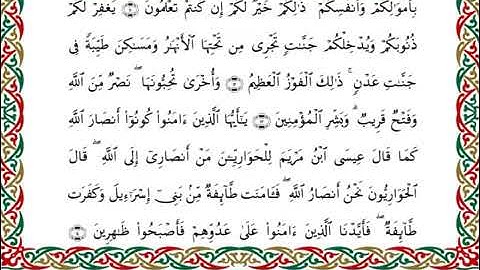 بِأَمْوَٰلِكُمْ وَأَنفُسِكُمْ ۚ ذَٰلِكُمْ خَيْرٌ لَّكُمْ إِن كُنتُمْ تَعْلَمُونَ ۝١١ يَغْفِرْ لَكُمْ
ذُنُوبَكُمْ وَيُدْخِلْكُمْ جَنَّٰتٍ تَجْرِى مِن تَحْتِهَا ٱلْأَنْهَٰرُ وَمَسَٰكِنَ طَيِّبَةً فِى
جَنَّٰتِ عَدْنٍ ۚ ذَٰلِكَ ٱلْفَوْزُ ٱلْعَظِيمُ ۝١٢ وَأُخْرَىٰ تُحِبُّونَهَا ۖ نَصْرٌ مِّنَ ٱللَّهِ
وَفَتْحٌ قَرِيبٌ ۗ وَبَشِّرِ ٱلْمُؤْمِنِينَ ۝١٣ يَٰٓأَيُّهَا ٱلَّذِينَ ءَامَنُوا۟ كُونُوٓا۟ أَنصَارَ ٱللَّهِ
كَمَا قَالَ عِيسَى ٱبْنُ مَرْيَمَ لِلْحَوَارِيِّۦنَ مَنْ أَنصَارِىٓ إِلَى ٱللَّهِ ۖ قَالَ
ٱلْحَوَارِيُّونَ نَحْنُ أَنصَارُ ٱللَّهِ ۖ فَـَٔامَنَت طَّآئِفَةٌ مِّنۢ بَنِىٓ إِسْرَٰٓءِيلَ وَكَفَرَت
طَّآئِفَةٌ ۖ فَأَيَّدْنَا ٱلَّذِينَ ءَامَنُوا۟ عَلَىٰ عَدُوِّهِمْ فَأَصْبَحُوا۟ ظَٰهِرِينَ ۝١٤